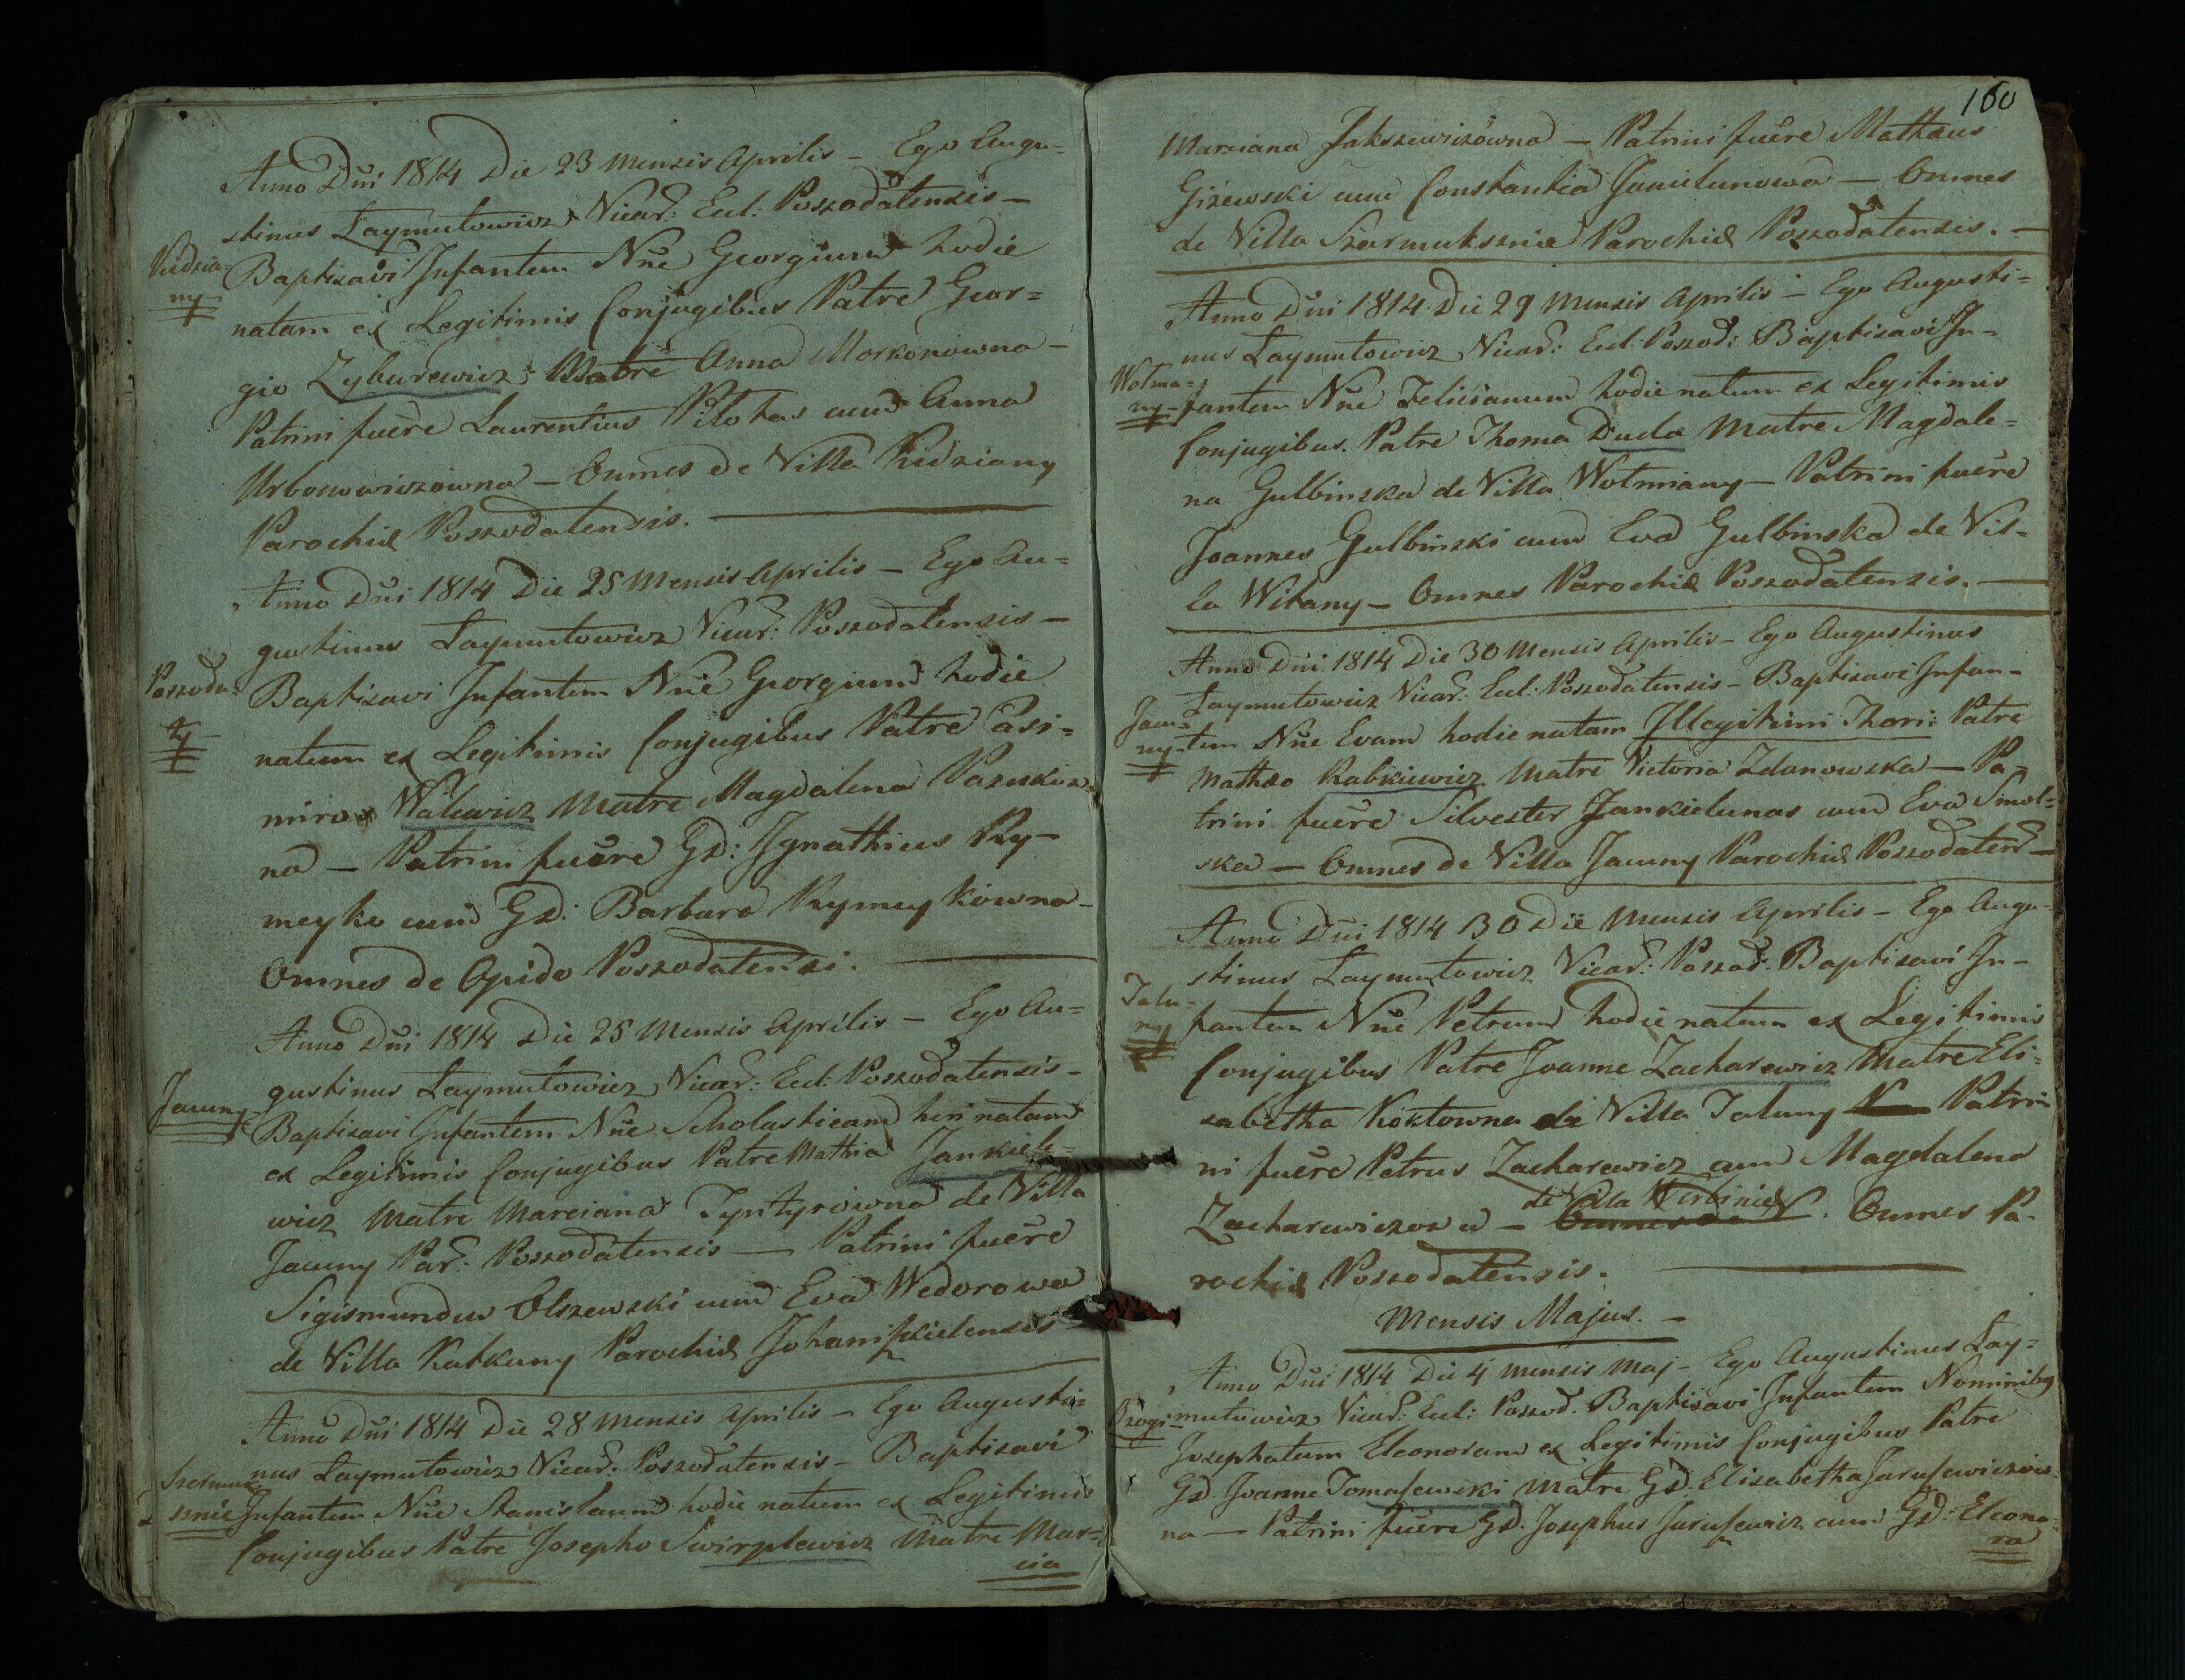 Anno Dni 1814 Die 23 Mensis Aprilis – Ego Augu=
stinus Laymutowicz Vicar: Eccl: Poszodatensis –
Kudzia=
ny
Baptisavi Infantem Nne Georgium hodie
natam ex Legitimis Conjugibus Patre Geor=
gio Zyburewicz Matre Anna Morkonowna –
Patrini fuere Laurentius Pilotas cum Anna
Urbonowiczowna – Omnes de Villa Kudziany
Parochiæ Poszodatensis.
Anno Dni 1814 Die 25 Mensis Aprilis – Ego Au=
gustinus Laymutowicz Vicar: Poszodatensis –
Poszodu=
ty
Baptisavi Infantem Nne Georgium hodie
natum ex Legitimis Conjugibus Patre Casi=
miro Walewicz Matre Magdalena
na – Patrini fuere Gd: Ignathius Ry–
meyko cum Gd: Barbara Rymeykowna –
Omnes de Opido Poszodatensi.
Anno Dni 1814 Die 25 Mensis Aprilis – Ego Au=
gustinus Laymutowicz Vicar: Eccl: Poszodatensis –
Jauny
Baptisavi Infantem Nne Scholasticam heri natam
ex Legitimis Conjugibus Patre Mathia Jankiele=
wicz Matre Marciana Tyntyrowna de Villa
Jauny Par: Poszodatensis – Patrini fuere
Sigismundus Olszewski cum Eva Wedorowa
de Villa Katkuny Parochiæ Johaniszkielensis
Anno Dni 1814 Die 28 Mensis Aprilis – Ego Augusti=
nus Laymutowicz Vicar: Poszodatensis – Baptisavi
Szermuk=
sznie
Infantem Nne Stanislaum hodie natum ex Legitimis
Conjugibus Patre Josepho Swirplewicz Matre Mar=
cia
160
Marciana Jakszewiczowna – Patrini fuere Mathæus
Giżewski cum Constantia – Omnes
de Villa Szarmuksznie Parochiæ Poszodatensis. –
Anno Dni 1814 Die 29 Mensis Aprilis – Ego Augusti=
nus Laymutowicz Vicar: Eccl: Poszod: Baptisavi In=
Wolmia=
ny
fantem Nne Felicianum hodie natum ex Legitimis
Conjugibus. Patre Thoma Duda Matre Magdale=
na Gulbinska de Villa Wolmiany – Patrini fuere
Joannes Gulbinski cum Eva Gulbinska de Vil=
la Witany – Omnes Parochiæ Poszodatensis. –
Anno Dni 1814 Die 30 Mensis Aprilis – Ego Augustinus
Laymutowicz Vicar: Eccl: Poszodatensis – Baptisavi Infan–
Jau=
ny
tem Nne Evam hodie natam Illegitimi Thori: Patre
Mathæo Rabkiewicz Matre Victoria Zdanowska – Pa=
trini fuere Silvester Jankielunas cum Eva Smol=
ska – Omnes de Villa Jauny Parochiæ Poszodaten –
Anno Dni 1814 30 Die Mensis Aprilis – Ego Augu=
stinus Laymutowicz Vicar: Poszod: Baptisavi In–
Talu=
ny
fantem Nne Petrum hodie natum ex Legitimis
Conjugibus Patre Joanne Zacharewicz Matre Eli=
sabetha Kozłowna de Villa Taluny Patri
ni fuere Petrus Zacharewicz cum Magdalena
Zacharewiczowa – de Villa Wirbinie. Omnes Pa=
rochiæ Poszodatensis.
Mensis Majus. –
Anno Dni 1814 Die 4 Mensis Maj – Ego Augustinus Lay=
Brogi
mutowicz Vicar: Eccl: Poszod. Baptisavi Infantem Nominibg
Josephatam Eleonoram ex Legitimis Conjugibus Patre
Gd. Joanne Tomaszewski Matre Gd: Elisabetha Jaruszewiczow=
na – Patrini fuere Gd. Josephus Jaruszewicz cum Gd: Eleono=
ra